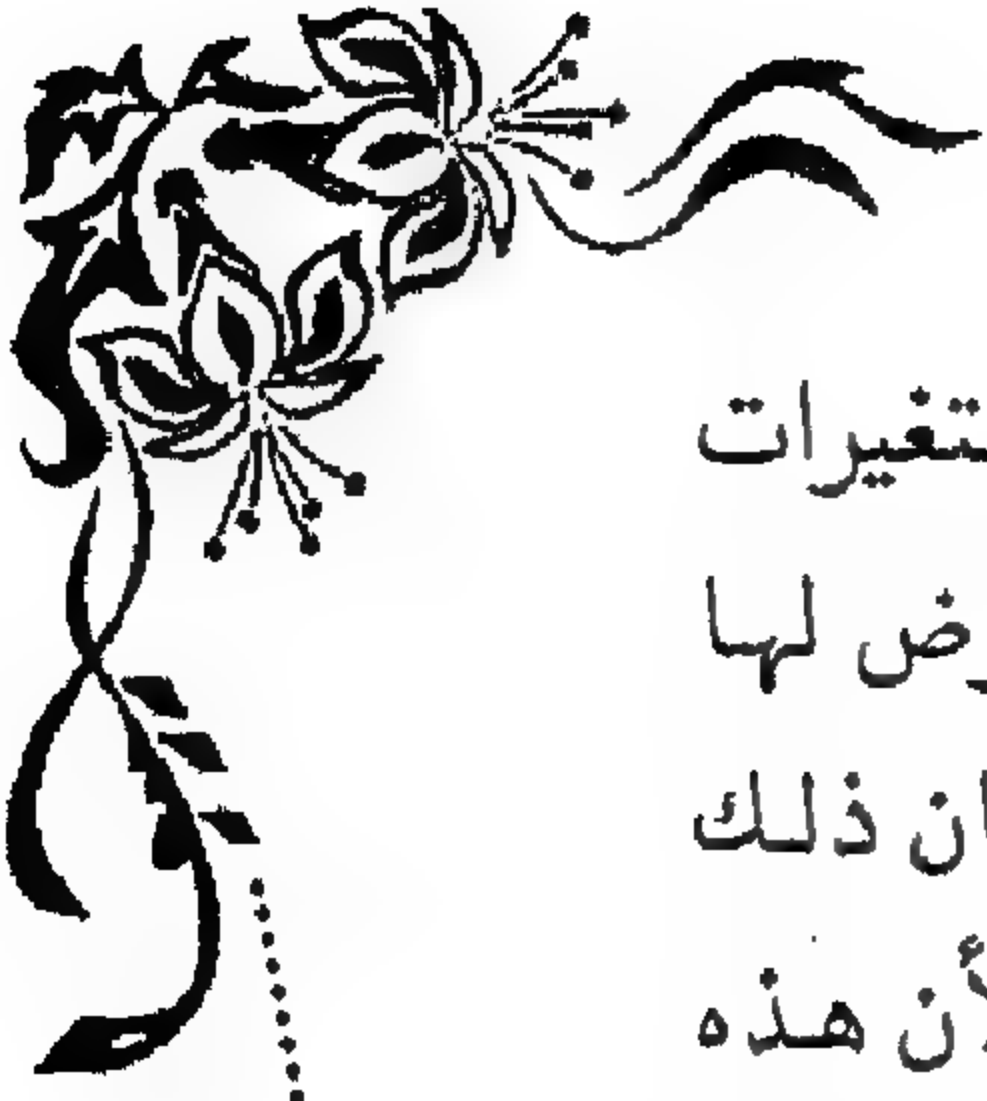 تغيرات
ض لها
ان ذلك
لأن هذه